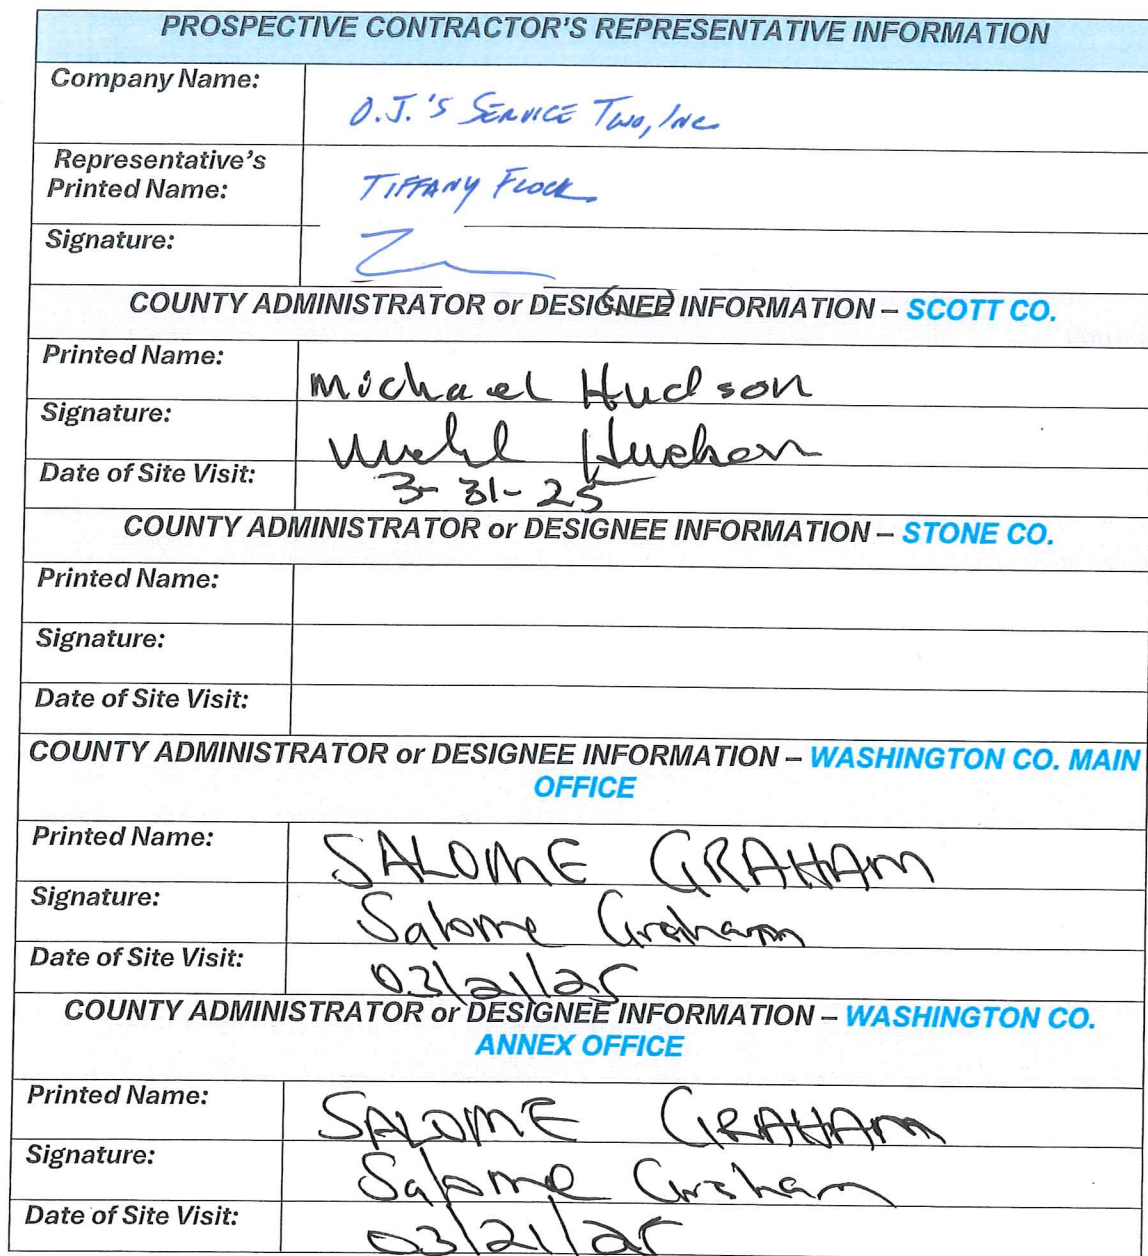 PROSPECTIVE CONTRACTOR'S REPRESENTATIVE INFORMATION
Company Name:
O.J.'S SERVICE TWO, INC
Representative's
Printed Name:
TIFFANY FLOCK
Signature:
COUNTY ADMINISTRATOR or DESIGNEE INFORMATION – SCOTT CO.
Printed Name:
Michael Hudson
Signature:
Michael Hudson
Date of Site Visit:
3-31-25
COUNTY ADMINISTRATOR or DESIGNEE INFORMATION – STONE CO.
Printed Name:
Signature:
Date of Site Visit:
COUNTY ADMINISTRATOR or DESIGNEE INFORMATION – WASHINGTON CO. MAIN
OFFICE
Printed Name:
SALOME GRAHAM
Signature:
Salome Graham
Date of Site Visit:
03/21/25
COUNTY ADMINISTRATOR or DESIGNEE INFORMATION – WASHINGTON CO.
ANNEX OFFICE
Printed Name:
SALOME GRAHAM
Signature:
Salome Graham
Date of Site Visit:
03/21/25